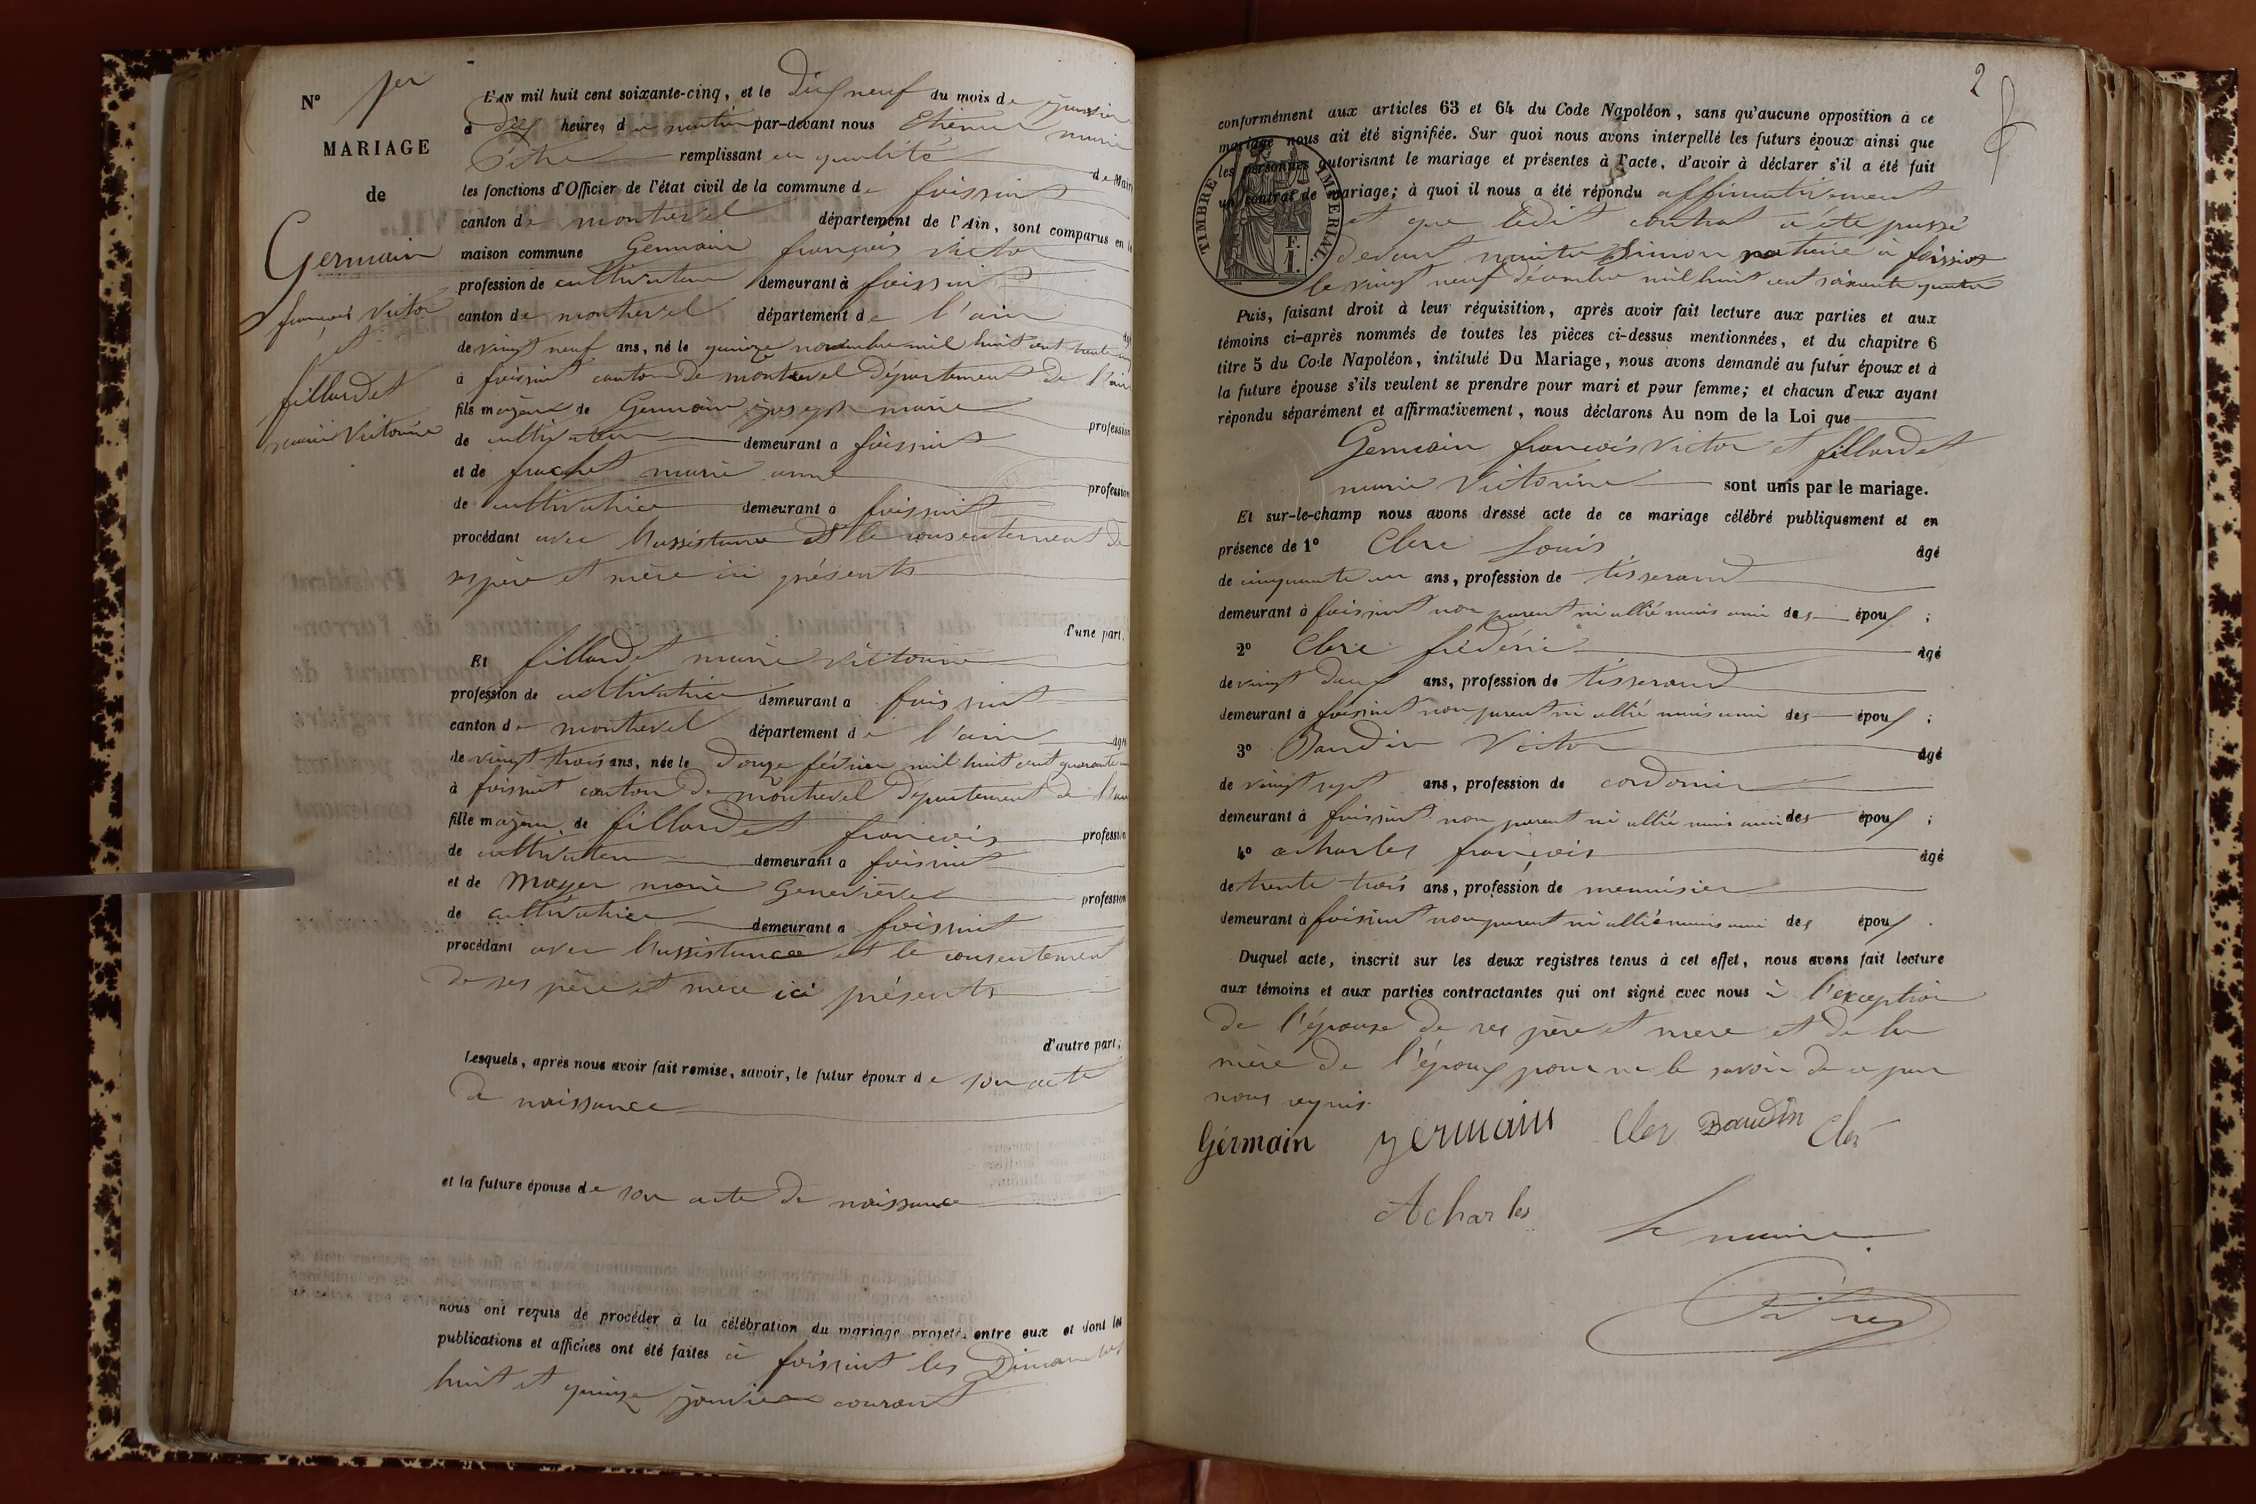 N° 1er
MARIAGE
de
Germain
françois Victor
et
fillardet
marie Victorine
L'an mil huit cent soixante-cinq, et le Dix neuf du mois de janvier
à Dix heures du matin par-devant nous Etienne marie
Pitre remplissant en qualité de Maire
les fonctions d'Officier de l'état civil de la commune de foissiat
canton de montrevel département de l'Ain, sont comparus en la
maison commune Germain françois victor
profession de cultivateur demeurant à foissiat
canton de montrevel département de l'ain âgé
de vingt neuf ans, né le quinze novembre mil huit cent trente
à foissiat canton De montrevel Département De l'ain
fils majeur de Germain joseph marie profession
de cultivateur demeurant à foissiat
et de frachet marie anne profession
de cultivatrice demeurant à foissiat
procédant avec l'assistance et le consentement de
ses père et mère ici présents
d'une part.
Et fillardet marie victorine
profession de cultivatrice demeurant à foissiat
canton de montrevel département de l'ain âgée
de vingt trois ans, née le Douze février mil huit cent quarante
à foissiat canton De montrevel Département de l'ain
fille majeure de fillardet francois profession
de cultivateur demeurant à foissiat
et de Moyer marie Genevieve profession
de cultivatrice demeurant à foissiat
procédant avec l'assistance et le consentement
De ses père et mère ici présents
d'autre part;
Lesquels, après nous avoir fait remise, savoir, le futur époux de son acte
De naissance
et la future épouse de son acte De naissance
nous ont requis de procéder à la célébration du mariage projeté entre eux et dont les
publications et affiches ont été faites à foissiat les Dimanches
huit et quinze janvier courant
2
conformément aux articles 63 et 64 du Code Napoléon, sans qu'aucune opposition à ce
mariage nous ait été signifiée. Sur quoi nous avons interpellé les futurs époux ainsi que
les personnes autorisant le mariage et présentes à l'acte, d'avoir à déclarer s'il a été fait
un contrat de mariage; à quoi il nous a été répondu affirmativement
et que ledit contrat a été passé
devant maitre Simon notaire à foissiat
le vingt neuf décembre mil huit cent soixante quatre
TIMBRE IMPERIAL
F.
1.
Puis, faisant droit à leur réquisition, après avoir fait lecture aux parties et aux
témoins ci-après nommés de toutes les pièces ci-dessus mentionnées, et du chapitre 6
titre 5 du Code Napoléon, intitulé Du Mariage, nous avons demandé au futur époux et à
la future épouse s'ils veulent se prendre pour mari et pour femme; et chacun d'eux ayant
répondu séparément et affirmativement, nous déclarons Au nom de la Loi que
Germain françois Victor et fillardet
marie Victorine sont unis par le mariage.
Et sur-le-champ nous avons dressé acte de ce mariage célébré publiquement et en
présence de 1° Clerc Louis âgé
de cinquante un ans, profession de tisserand
demeurant à foissiat non parent ni allié mais ami des époux ;
2° Clerc frédéric âgé
de vingt deux ans, profession de tisserand
demeurant à foissiat non parent ni allié mais ami des époux ;
3° Baudin Victor âgé
de vingt sept ans, profession de cordonnier
demeurant à foissiat non parent ni allié mais ami des époux ;
4° acharles françois âgé
de trente trois ans, profession de menuisier
demeurant à foissiat non parent ni allié mais ami des époux .
Duquel acte, inscrit sur les deux registres tenus à cet effet, nous avons fait lecture
aux témoins et aux parties contractantes qui ont signé avec nous à l'exception
De l'épouse De ses père et mère et De la
mère De l'époux pour ne le savoir De ce par
nous requis
Gérmain germain Cler Baudin Clér
Acharles
Le maire
Pitre